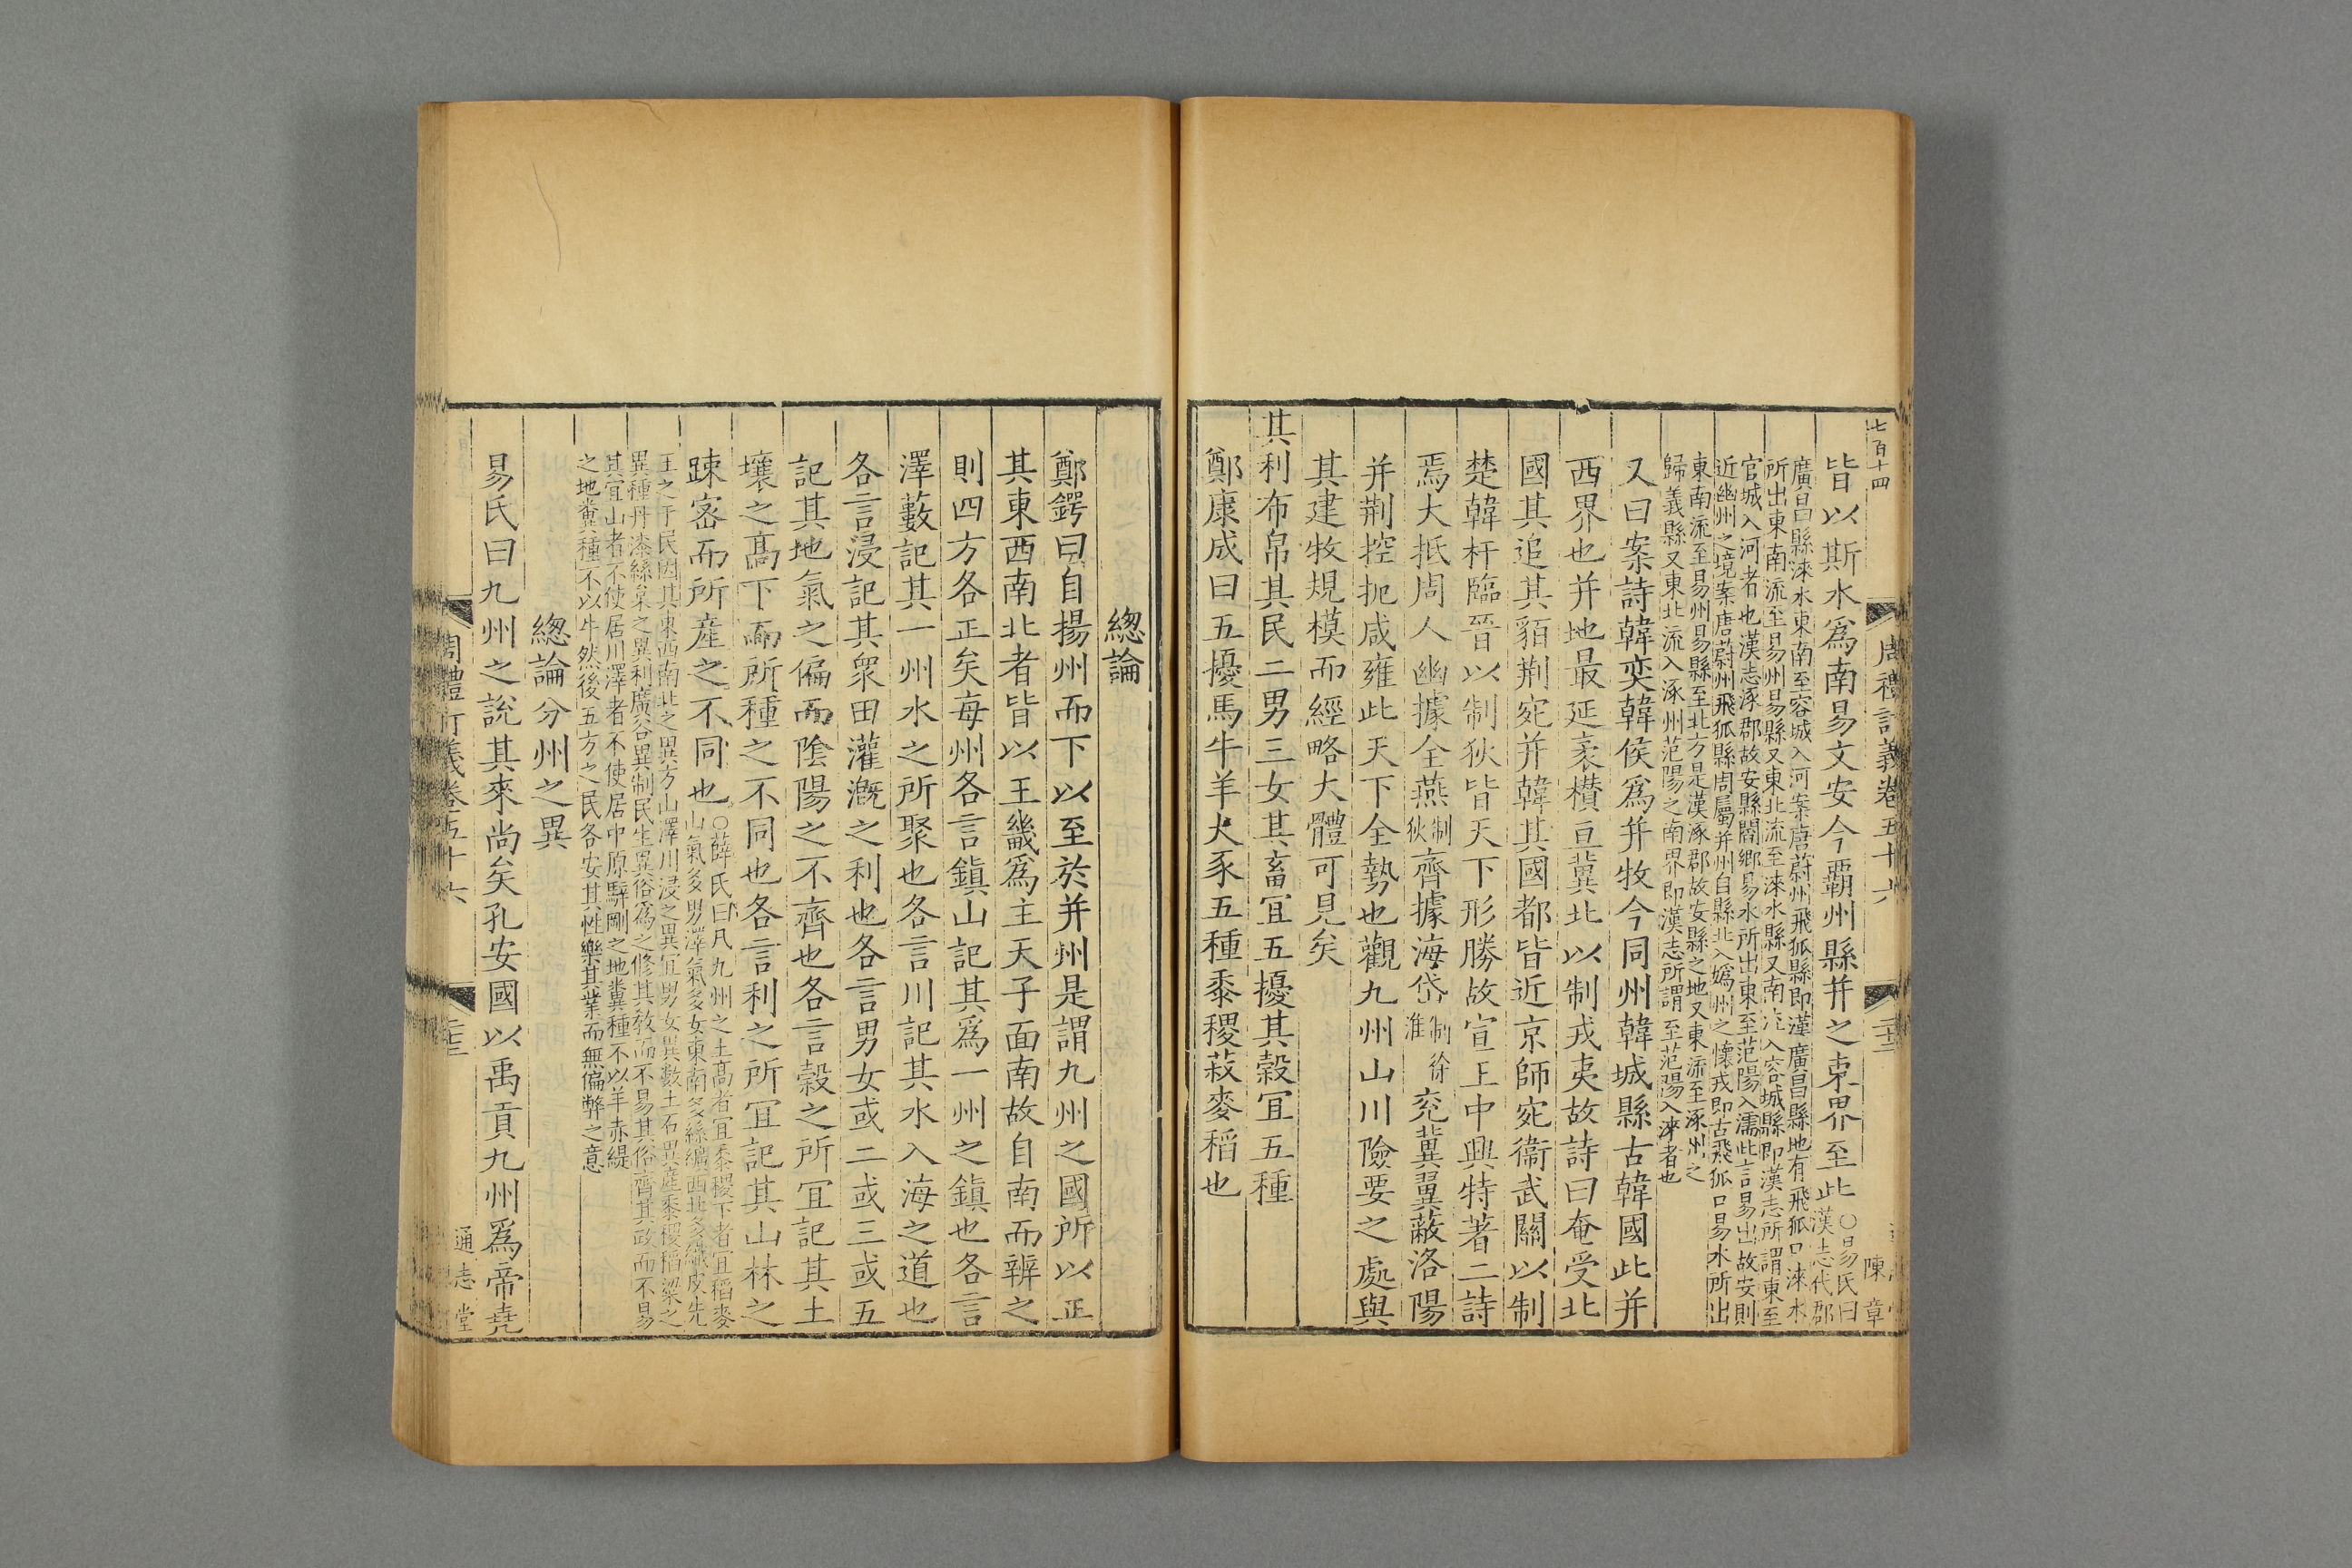 七百十四
周禮訂義卷五十六
陳章
皆以斯水爲南易文安今覇州縣并之東界至此〇易氏曰漢志代郡
廣昌縣淶水東南至容城入河案唐蔚州飛狐縣即漢廣昌縣地有飛狐口淶水
所出東南流至易州易縣又東北流至淶水縣又南流入容城縣即漢志所謂東至
官城入河者也漢志涿郡故安縣閻鄉易水所出東至范陽入濡此言易出故安則
近幽州之境案唐蔚州飛狐縣周屬并州自縣北入嬀州之懷戎即古飛狐口易水所出
東南流至易州易縣至北方是漢涿郡故安縣之地又東流至涿州之
歸義縣又東北流入涿州范陽之南界即漢志所謂至范陽入淶者也
又曰案詩韓奕韓侯爲并牧今同州韓城縣古韓國此并
西界也并地最延袤横亘冀北以制戎夷故詩曰奄受北
國其追其貊荆宛并韓其國都皆近京師宛衞武關以制
楚韓杆臨晉以制狄皆天下形勝故宣王中興特著二詩
焉大抵周人幽據全燕制狄齊據海岱制徐淮兖冀翼蔽洛陽
并荆控扼咸雍此天下全勢也觀九州山川險要之處與
其建牧規模而經略大體可見矣
其利布帛其民二男三女其畜宜五擾其穀宜五種
鄭康成曰五擾馬牛羊犬豕五種黍稷菽麥稻也
緫論
鄭鍔曰自揚州而下以至於并州是謂九州之國所以正
其東西南北者皆以王畿爲主天子面南故自南而辨之
則四方各正矣每州各言鎮山記其爲一州之鎮也各言
澤藪記其一州水之所聚也各言川記其水入海之道也
各言浸記其衆田灌溉之利也各言男女或二或三或五
記其地氣之偏而陰陽之不齊也各言穀之所宜記其土
壤之高下而所種之不同也各言利之所宜記其山林之
踈宻而所産之不同也〇薛氏曰凡九州之土高者宜黍稷下者宜稻麥
山氣多男澤氣多女東南多絲纊西北多織皮先
王之于民因其東西南北之異方山澤川浸之異宜男女異數土石異産黍稷稻粱之
異種丹漆絲枲之異利廣谷異制民生異俗爲之修其敎而不易其俗齊其政而不易
其宜山者不使居川澤者不使居中原騂剛之地糞種不以羊赤緹
之地糞種不以牛然後五方之民各安其性樂其業而無偏弊之意
緫論分州之異
易氏曰九州之說其來尚矣孔安國以禹貢九州爲帝堯
周禮訂義卷五十六
通志堂